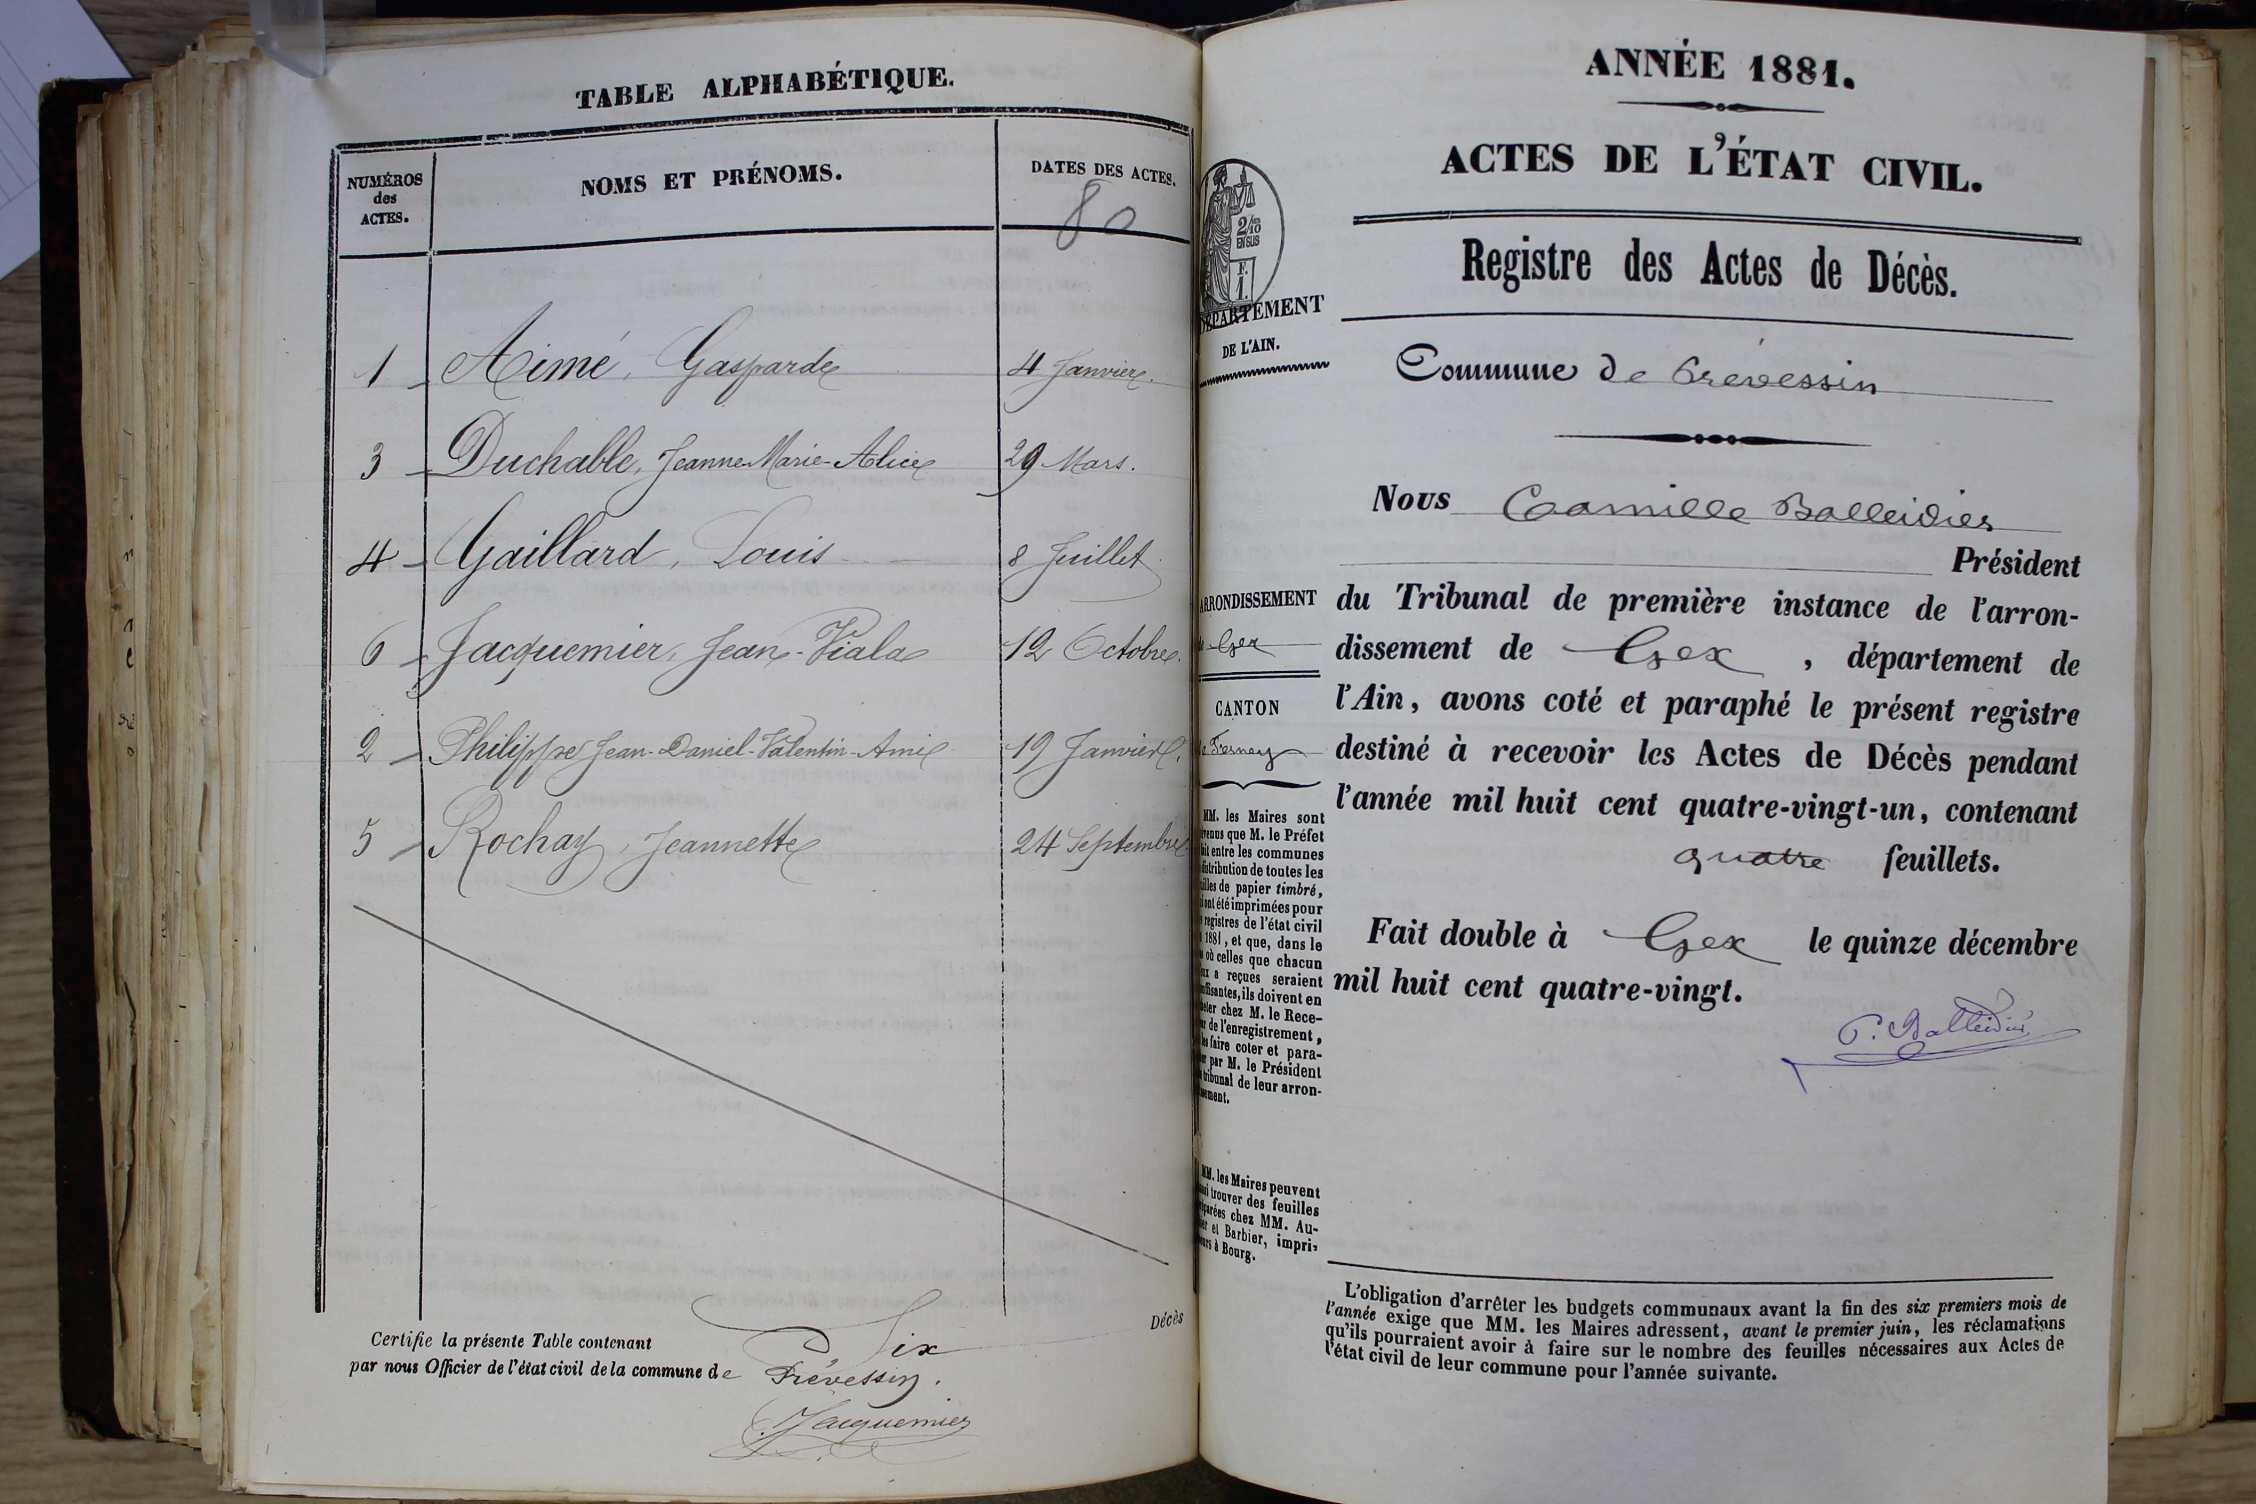 TABLE ALPHABÉTIQUE.
NUMÉROS
des
ACTES.
NOMS ET PRÉNOMS.
DATES DES ACTES.
80
1 Aimé, Gasparde 4 Janvier.
3 Duchable, Jeanne-Marie-Alice 29 Mars.
4 Gaillard, Louis 8 Juillet
6 Jacquemier, Jean-Viala 12 Octobre.
2 Philippe Jean-Daniel-Valentin-Ami 19 Janvier.
5 Rochay, Jeannette 24 Septembre
Certifie la présente Table contenant Six Décès
par nous Officier de l'état civil de la commune de Prévessin.
Jacquemier
ANNÉE 1881.
ACTES DE L'ÉTAT CIVIL.
Registre des Actes de Décès.
2/10
EN SUS
F.
1.
DÉPARTEMENT
DE L'AIN.
Commune de Prévessin
Nous Camille Balleidier
Président
du Tribunal de première instance de l'arron-
dissement de Gex, département de
l'Ain, avons coté et paraphé le présent registre
destiné à recevoir les Actes de Décès pendant
l'année mil huit cent quatre-vingt-un, contenant
quatre feuillets.
Fait double à Gex le quinze décembre
mil huit cent quatre-vingt.
C. Balleidier
ARRONDISSEMENT
de Gex
CANTON
de Ferney
MM. les Maires sont
que M. le Préfet
fait entre les communes
distribution de toutes les
de papier timbré,
ont été imprimées pour
registres de l'état civil
1881, et que, dans le
où celles que chacun
a reçues seraient
ils doivent en
chez M. le Rece-
de l'enregistrement,
les faire coter et para-
par M. le Président
tribunal de leur arron-
MM. les Maires peuvent
trouver des feuilles
chez MM. Au-
et Barbier, impri-
à Bourg.
L'obligation d'arrêter les budgets communaux avant la fin des six premiers mois de
l'année exige que MM. les Maires adressent, avant le premier juin, les réclamations
qu'ils pourraient avoir à faire sur le nombre des feuilles nécessaires aux Actes de
l'état civil de leur commune pour l'année suivante.